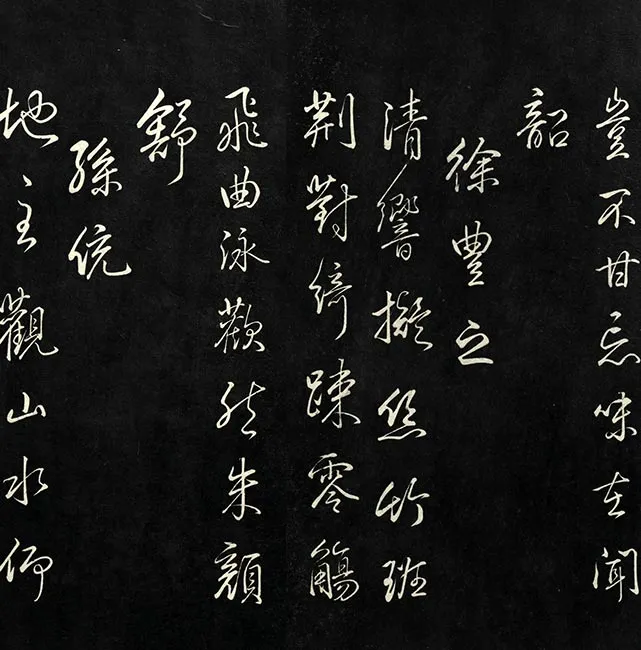 豈不甘忘味在聞
韶
徐豐之
清響擬絲竹班
荆對綺踈零觴
飛曲泳歡然朱顔
舒
孫統
地主觀山水仰